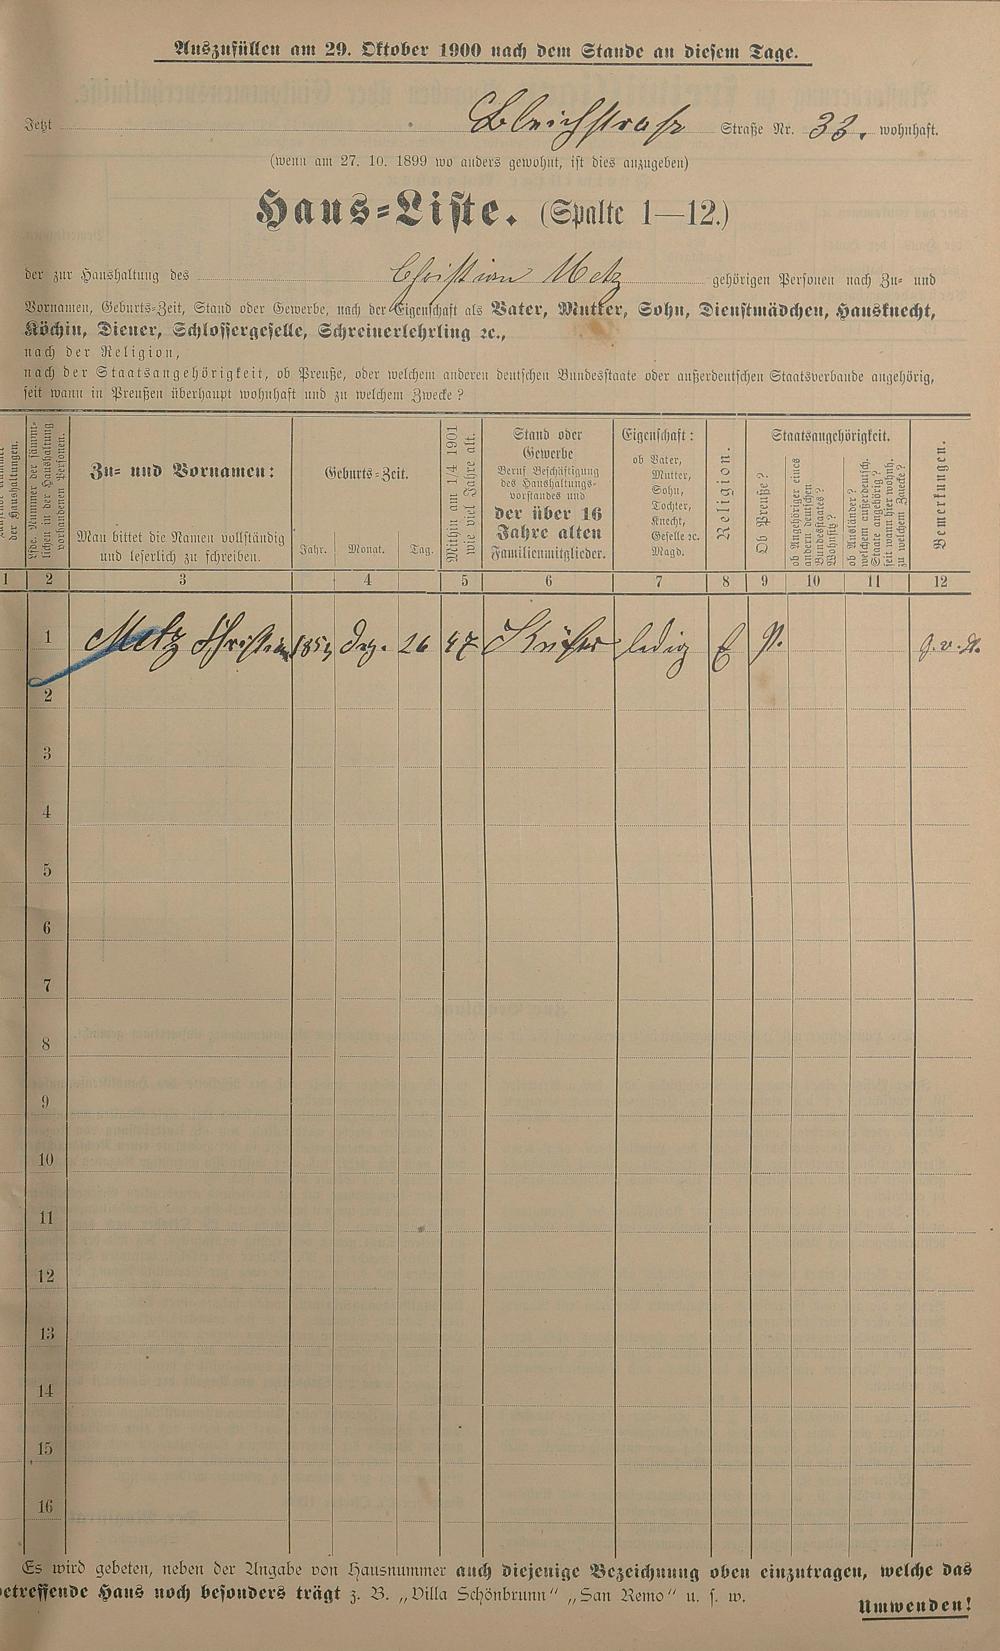 Auszufüllen am 29. Oktober 1900 nach dem Stande an diesem Tage.
Jetzt Bleichstraße Straße Nr. 33. wohnhaft.
(wenn am 27. 10. 1899 wo anders gewohnt, ist dies anzugeben)
Haus-Liste. (Spalte 1—12.)
der zur Haushaltung des Christian Metz gehörigen Personen nach Zu- und
Vornamen, Geburts-Zeit, Stand oder Gewerbe, nach der Eigenschaft als Vater, Mutter, Sohn, Dienstmädchen, Hausknecht,
Köchin, Diener, Schlossergeselle, Schreinerlehrling ꝛc.,
nach der Religion,
nach der Staatsangehörigkeit, ob Preuße, oder welchem anderen deutschen Bundesstaate oder außerdeutschen Staatsverbande angehörig,
seit wann in Preußen überhaupt wohnhaft und zu welchem Zwecke?
Nummer
der Haushaltungen.
Lfde. Nummer der sämmt-
lichen in der Haushaltung
vorhandenen Personen.
Zu- und Vornamen:
Man bittet die Namen vollständig
und leserlich zu schreiben.
Geburts-Zeit.
Jahr. Monat. Tag.
Mithin am 1/4 1901
wie viel Jahre alt.
Stand oder
Gewerbe
Beruf Beschäftigung
des Haushaltungs-
vorstandes und
der über 16
Jahre alten
Familienmitglieder.
Eigenschaft:
ob Vater,
Mutter,
Sohn,
Tochter,
Knecht,
Geselle ꝛc.
Magd.
Religion.
Staatsangehörigkeit.
Ob Preuße?
ob Angehöriger eines
andern deutschen
Bundesstaates?
Wohnsitz?
ob Ausländer?
welchem außerdeutsch.
Staate angehörig?
seit wann hier wohnh.
zu welchem Zwecke?
Bemerkungen.
1 2 3 4 5 6 7 8 9 10 11 12
1 Metz Christian 1853 Dez. 26 47 Küfer ledig E P.
2
3
4
5
6
7
8
9
10
11
12
13
14
15
16
Es wird gebeten, neben der Angabe von Hausnummer auch diejenige Bezeichnung oben einzutragen, welche das
betreffende Haus noch besonders trägt z. B. „Villa Schönbrunn“ „San Remo“ u. s. w.
Umwenden!